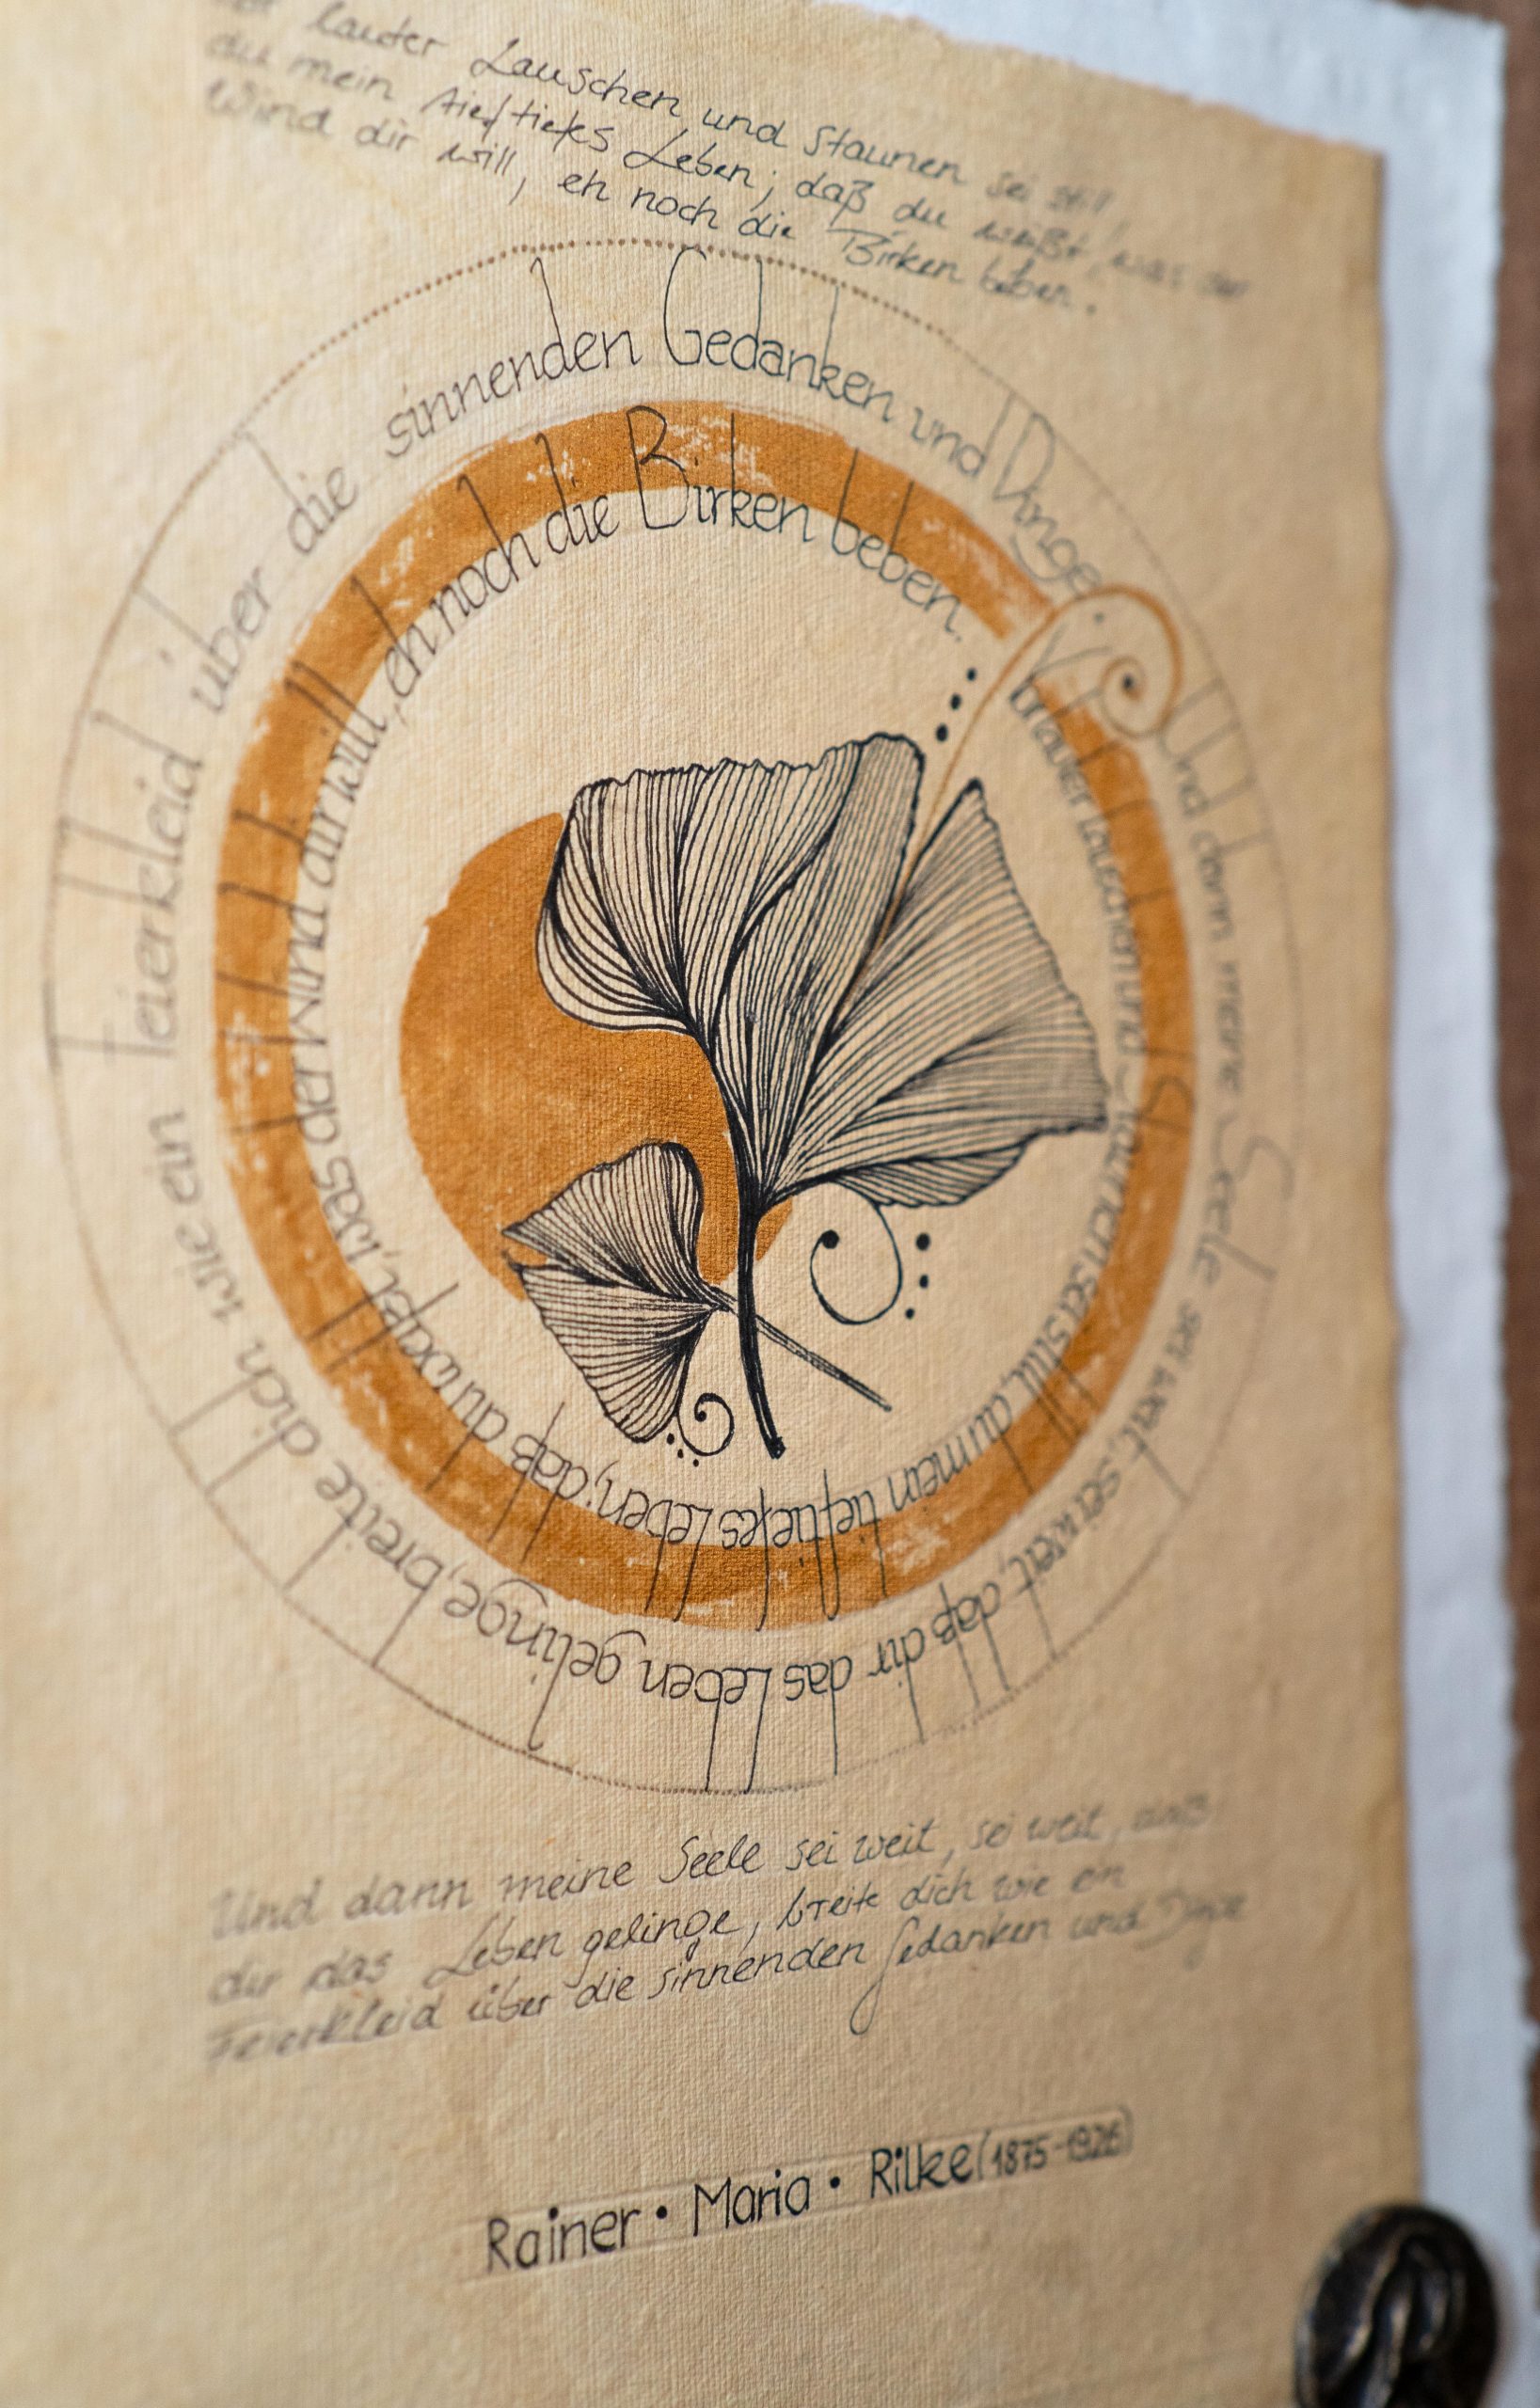 lauter Lauschen und Staunen sei still
du mein tieftiefes Leben; daß du weißt, was der
Wind dir will, eh noch die Birken beben.
Vor lauter Lauschen und Staunen sei still, du mein tieftiefes Leben; daß du weißt, was der Wind dir will, eh noch die Birken beben.
Und dann meine Seele sei weit, sei weit, daß dir das Leben gelinge, breite dich wie ein Feierkleid über die sinnenden Gedanken und Dinge
Und dann meine Seele sei weit, sei weit, daß
dir das Leben gelinge, breite dich wie ein
Feierkleid über die sinnenden Gedanken und Dinge
Rainer • Maria • Rilke (1875-1926)